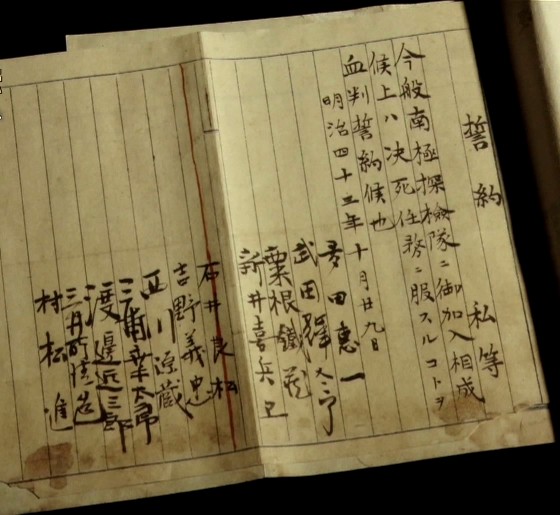 誓約
私等
今般南極探檢隊ニ御加入相成
候上ハ決死任務ニ服スルコトヲ
血判誓約候也
明治四十三年十月廿九日
多田惠一
武田輝太郎
粟根鐵蔵
新井喜兵
石井良松
吉野義忠
西川源蔵
三浦幸太郎
渡邊近三郎
三井所清造
村松進